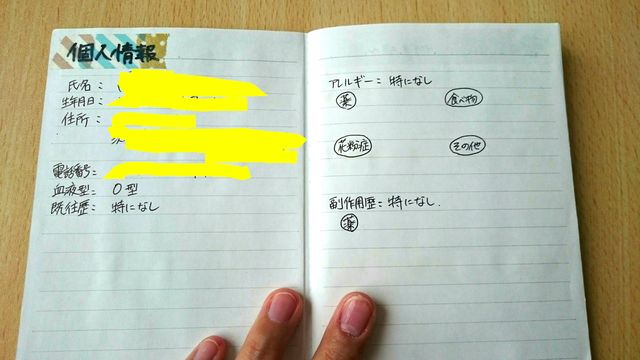 個人情報
氏名:
生年月日:
住所:
電話番号:
血液型: O型
既往歴: 特になし
アレルギー: 特になし
薬 食べ物
花粉症 その他
副作用歴: 特になし.
薬